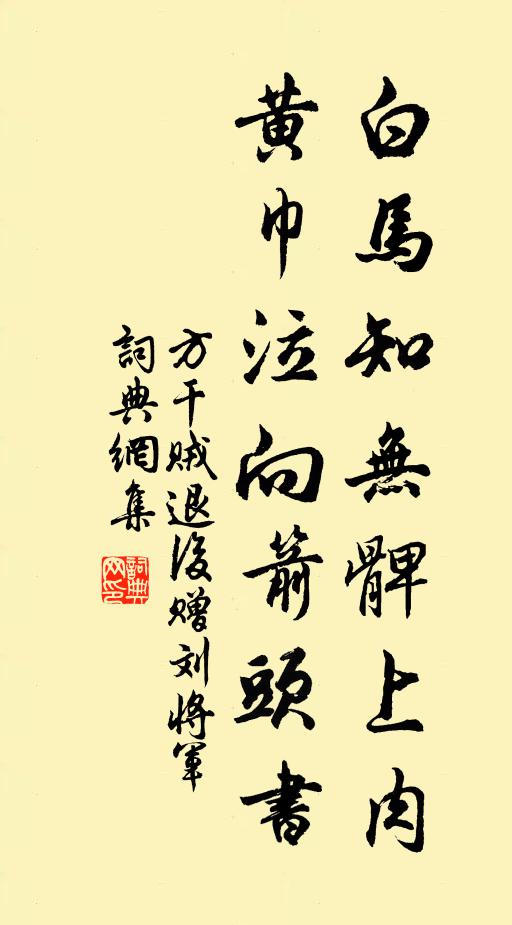 白馬知無髀上肉
黄巾泣向箭頭書
方干贼退後赠刘将軍
詞典網集
詞典
网印